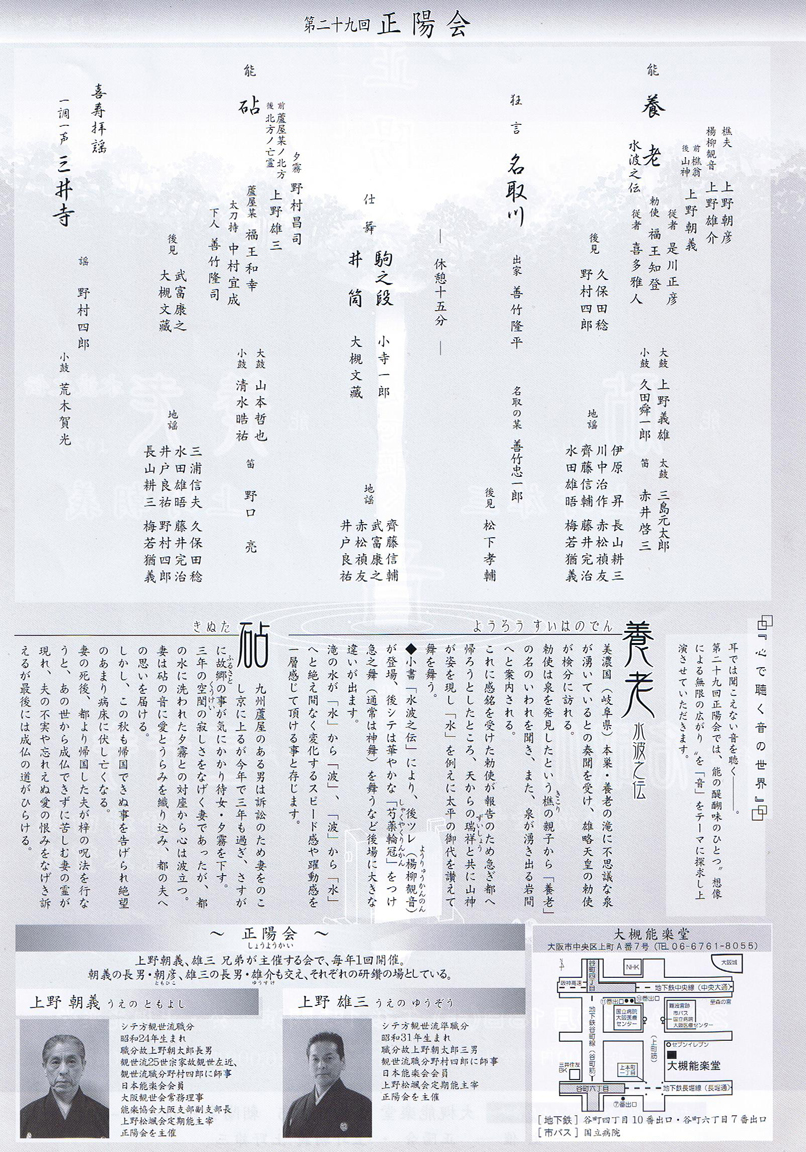 第二十九回 正陽会
能 養老 水波之伝
樵夫 上野朝彦
楊柳観音 上野雄介
前 樵翁
後 山神
上野朝義
従者 是川正彦
勅使 福王知登
従者 喜多雅人
後見 久保田稔
野村四郎
大鼓 上野義雄
小鼓 久田舜一郎
太鼓 三島元太郎
笛 赤井啓三
地謡
伊原 昇 長山耕三
川中治作 赤松禎友
齊藤信輔 藤井完治
水田雄晤 梅若猶義
狂言 名取川
出家 善竹隆平
名取の某 善竹忠一郎
後見 松下孝輔
― 休憩十五分 ―
仕舞
駒之段 小寺一郎
井筒 大槻文藏
地謡
齊藤信輔
武富康之
赤松禎友
井戸良祐
能 砧
夕霧 野村昌司
前 蘆屋某ノ北方
後 北方ノ亡霊
上野雄三
蘆屋某 福王和幸
太刀持 中村宜成
下人 善竹隆司
後見 武富康之
大槻文藏
大鼓 山本哲也
小鼓 清水晧祐
笛 野口 亮
地謡
三浦信夫 久保田稔
水田雄晤 藤井完治
井戸良祐 野村四郎
長山耕三 梅若猶義
喜寿拝謡
一調一声 三井寺
謡 野村四郎
小鼓 荒木賀光
『心で聴く音の世界』
耳では聞こえない音を聴く――。
第二十九回正陽会では、能の醍醐味のひとつ〝想像
による無限の広がり〟を「音」をテーマに探求し上
演させていただきます。
養老 水波之伝
ようろう すいはのでん
美濃国(岐阜県)本巣・養老の滝に不思議な泉
が湧いているとの奏聞を受け、雄略天皇の勅使
が検分に訪れる。
勅使は泉を発見したという樵の親子から「養老」
きこり
の名のいわれを聞き、また、泉が湧き出る岩間
へと案内される。
これに感銘を受けた勅使が報告のため急ぎ都へ
帰ろうとしたところ、天からの瑞祥と共に山神
ずいしょう
が姿を現し「水」を例えに太平の御代を讃えて
舞を舞う。
◆小書「水波之伝」により、後ツレ(楊柳観音)
ようりゅうかんのん
が登場、後シテは華やかな「芍薬輪冠」をつけ
しゃくやくりんかん
急之舞(通常は神舞)を舞うなど後場に大きな
違いが出ます。
滝の水が「水」から「波」、「波」から「水」
へと絶え間なく変化するスピード感や躍動感を
一層感じて頂ける事と存じます。
砧
きぬた
九州蘆屋のある男は訴訟のため妻をのこ
し京に上るが今年で三年も過ぎ、さすが
に故郷の事が気にかかり待女・夕霧を下す。
ふるさと
三年の空閨の寂しさをなげく妻であったが、都
くうけい
の水に洗われた夕霧との対座から心は波立つ。
妻は砧の音に愛とうらみを織り込み、都の夫へ
の思いを届ける。
しかし、この秋も帰国できぬ事を告げられ絶望
のあまり病床に伏し亡くなる。
妻の死後、都より帰国した夫が梓の呪法を行な
うと、あの世から成仏できずに苦しむ妻の霊が
現れ、夫の不実や忘れえぬ愛の恨みをなげき訴
えるが最後には成仏の道がひらける。
~ 正陽会 ~
しょうようかい
上野朝義、雄三 兄弟が主催する会で、毎年1回開催。
朝義の長男・朝彦、雄三の長男・雄介も交え、それぞれの研鑽の場としている。
ともひこ
ゆうすけ
上野 朝義 うえの ともよし
シテ方観世流職分
昭和24年生まれ
職分故上野朝太郎長男
観世流25世宗家故観世左近、
観世流職分野村四郎に師事
日本能楽会会員
大阪観世会常務理事
能楽協会大阪支部副支部長
上野松颯会定期能主宰
正陽会を主催
上野 雄三 うえの ゆうぞう
シテ方観世流準職分
昭和31年生まれ
職分故上野朝太郎三男
観世流職分野村四郎に師事
日本能楽会会員
上野松颯会定期能主宰
正陽会を主催
大槻能楽堂
大阪市中央区上町A番7号(TEL 06-6761-8055)
大阪城
NHK
谷町四丁目
阪神高速
地下鉄中央線(中央大通)
⑪番出口
⑩番出口
至森の宮
国立病院
大阪医療
センター
難波宮跡
市バス
国立病院
大阪医療センター
地下鉄谷町線(谷町筋)
(上町筋)
セブンイレブン
大槻能楽堂
三井住友
BK
上本町
一丁目
谷町六丁目
地下鉄長堀線(長堀通)
⑦番出口
[地下鉄]谷町四丁目10番出口・谷町六丁目7番出口
[市バス]国立病院